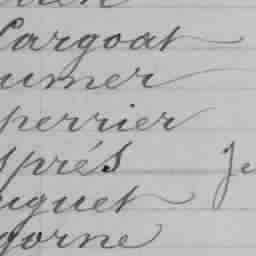 Cargoat
umer
perrier
sprés
uguet
gorne